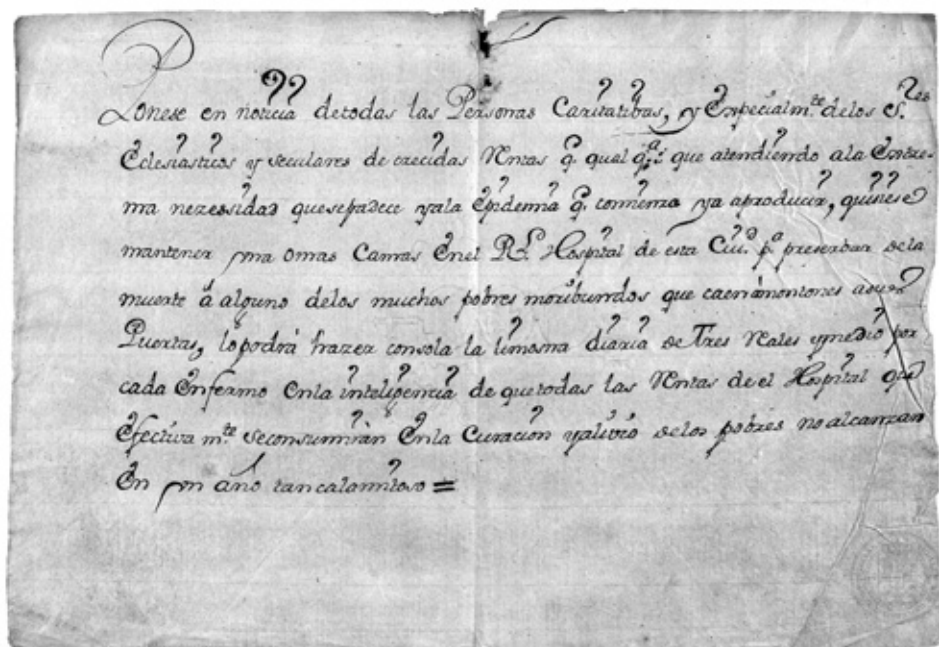 Ponese en noticia detodas las Personas Caritatibas, y Especialm.te delos S.res
Eclesiasticos y seculares de crecidas Rentas q. qual q.a que atendiendo ala Extre-
ma nezessidad quesepadece yala Epidemia q. comienza ya aproducir, quisiese
mantener una omas Camas Enel R.l Hospital de esta Ciu.d p.a preserbar dela
muerte á alguno delos muchos pobres moribundos que caen ámontones asus
Puertas, lo podrá hazer consola la limosna diaria de Tres Reales ymedio por
cada Enfermo Enla inteligencia de quetodas las Rentas de el Hospital que
Efectiva m.te seconsumirán Enla Curacion yalivio delos pobres no alcanzan
En un año tan calamitoso =